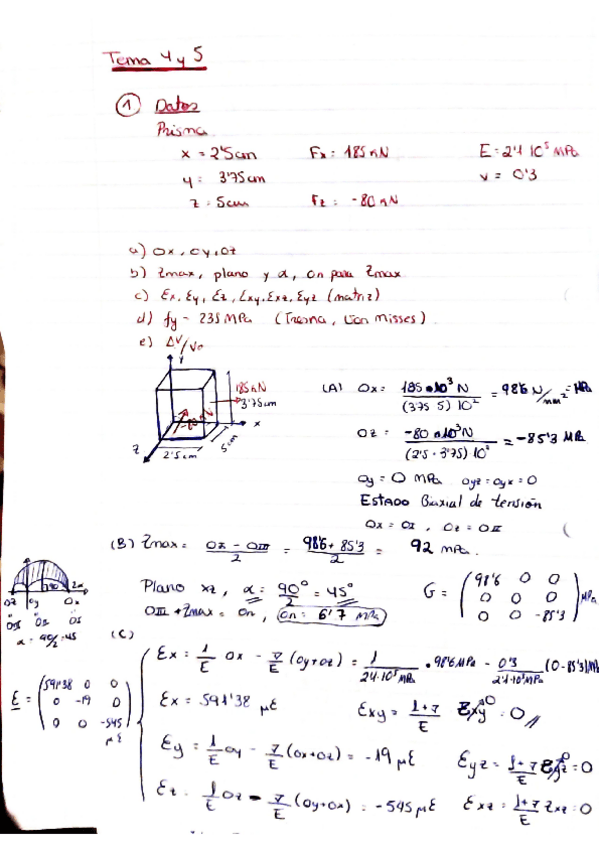 Tema 4 y 5
① Datos
Prisma
x = 2'5cm Fx: 185 kN E = 2'1 10⁵ MPa
y: 3'75 cm ν = 0'3
z: 5cm Fz: -80 kN
a) σx, σy, σz
b) τmax, plano y α, σn para τmax
c) εx, εy, εz, εxy, εxz, εyz (matriz)
d) fy = 235 MPa (Tresca, Von Misses)
e) ΔV/V₀
y
185 kN
3'75cm
x
z
2'5cm
5cm
(A) σx = 185·10³ N / (3'75·5) 10² = 98'6 N/mm² = MPa
σz = -80·10³ N / (2'5·3'75) 10² = -85'3 MPa
σy = 0 MPa σyz = σyx = 0
ESTADO Biaxial de tensión
σx = σI, σz = σIII
(B) τmax = σI - σIII / 2 = 98'6 + 85'3 / 2 = 92 MPa.
Plano xz, α = 90°/2 = 45°
G = (98'6 0 0
0 0 0
0 0 -85'3) MPa
σIII + τmax = σn, σn = 6'7 MPa
σz σy σx
α = 90/2 = 45
(C)
εx = 1/E σx - ν/E (σy+σz) = 1/2'1·10⁵ MPa · 98'6 MPa - 0'3/2'1·10⁵ MPa (0-85'3)MPa
εx = 591'38 με εxy = 1+ν/E τxy = 0
E = (591'38 0 0
0 -19 0
0 0 -545) με
εy = 1/E σy - ν/E (σx+σz) = -19 με εyz = 1+ν/E τyz = 0
εz = 1/E σz - ν/E (σy+σx) = -545 με εxz = 1+ν/E τxz = 0